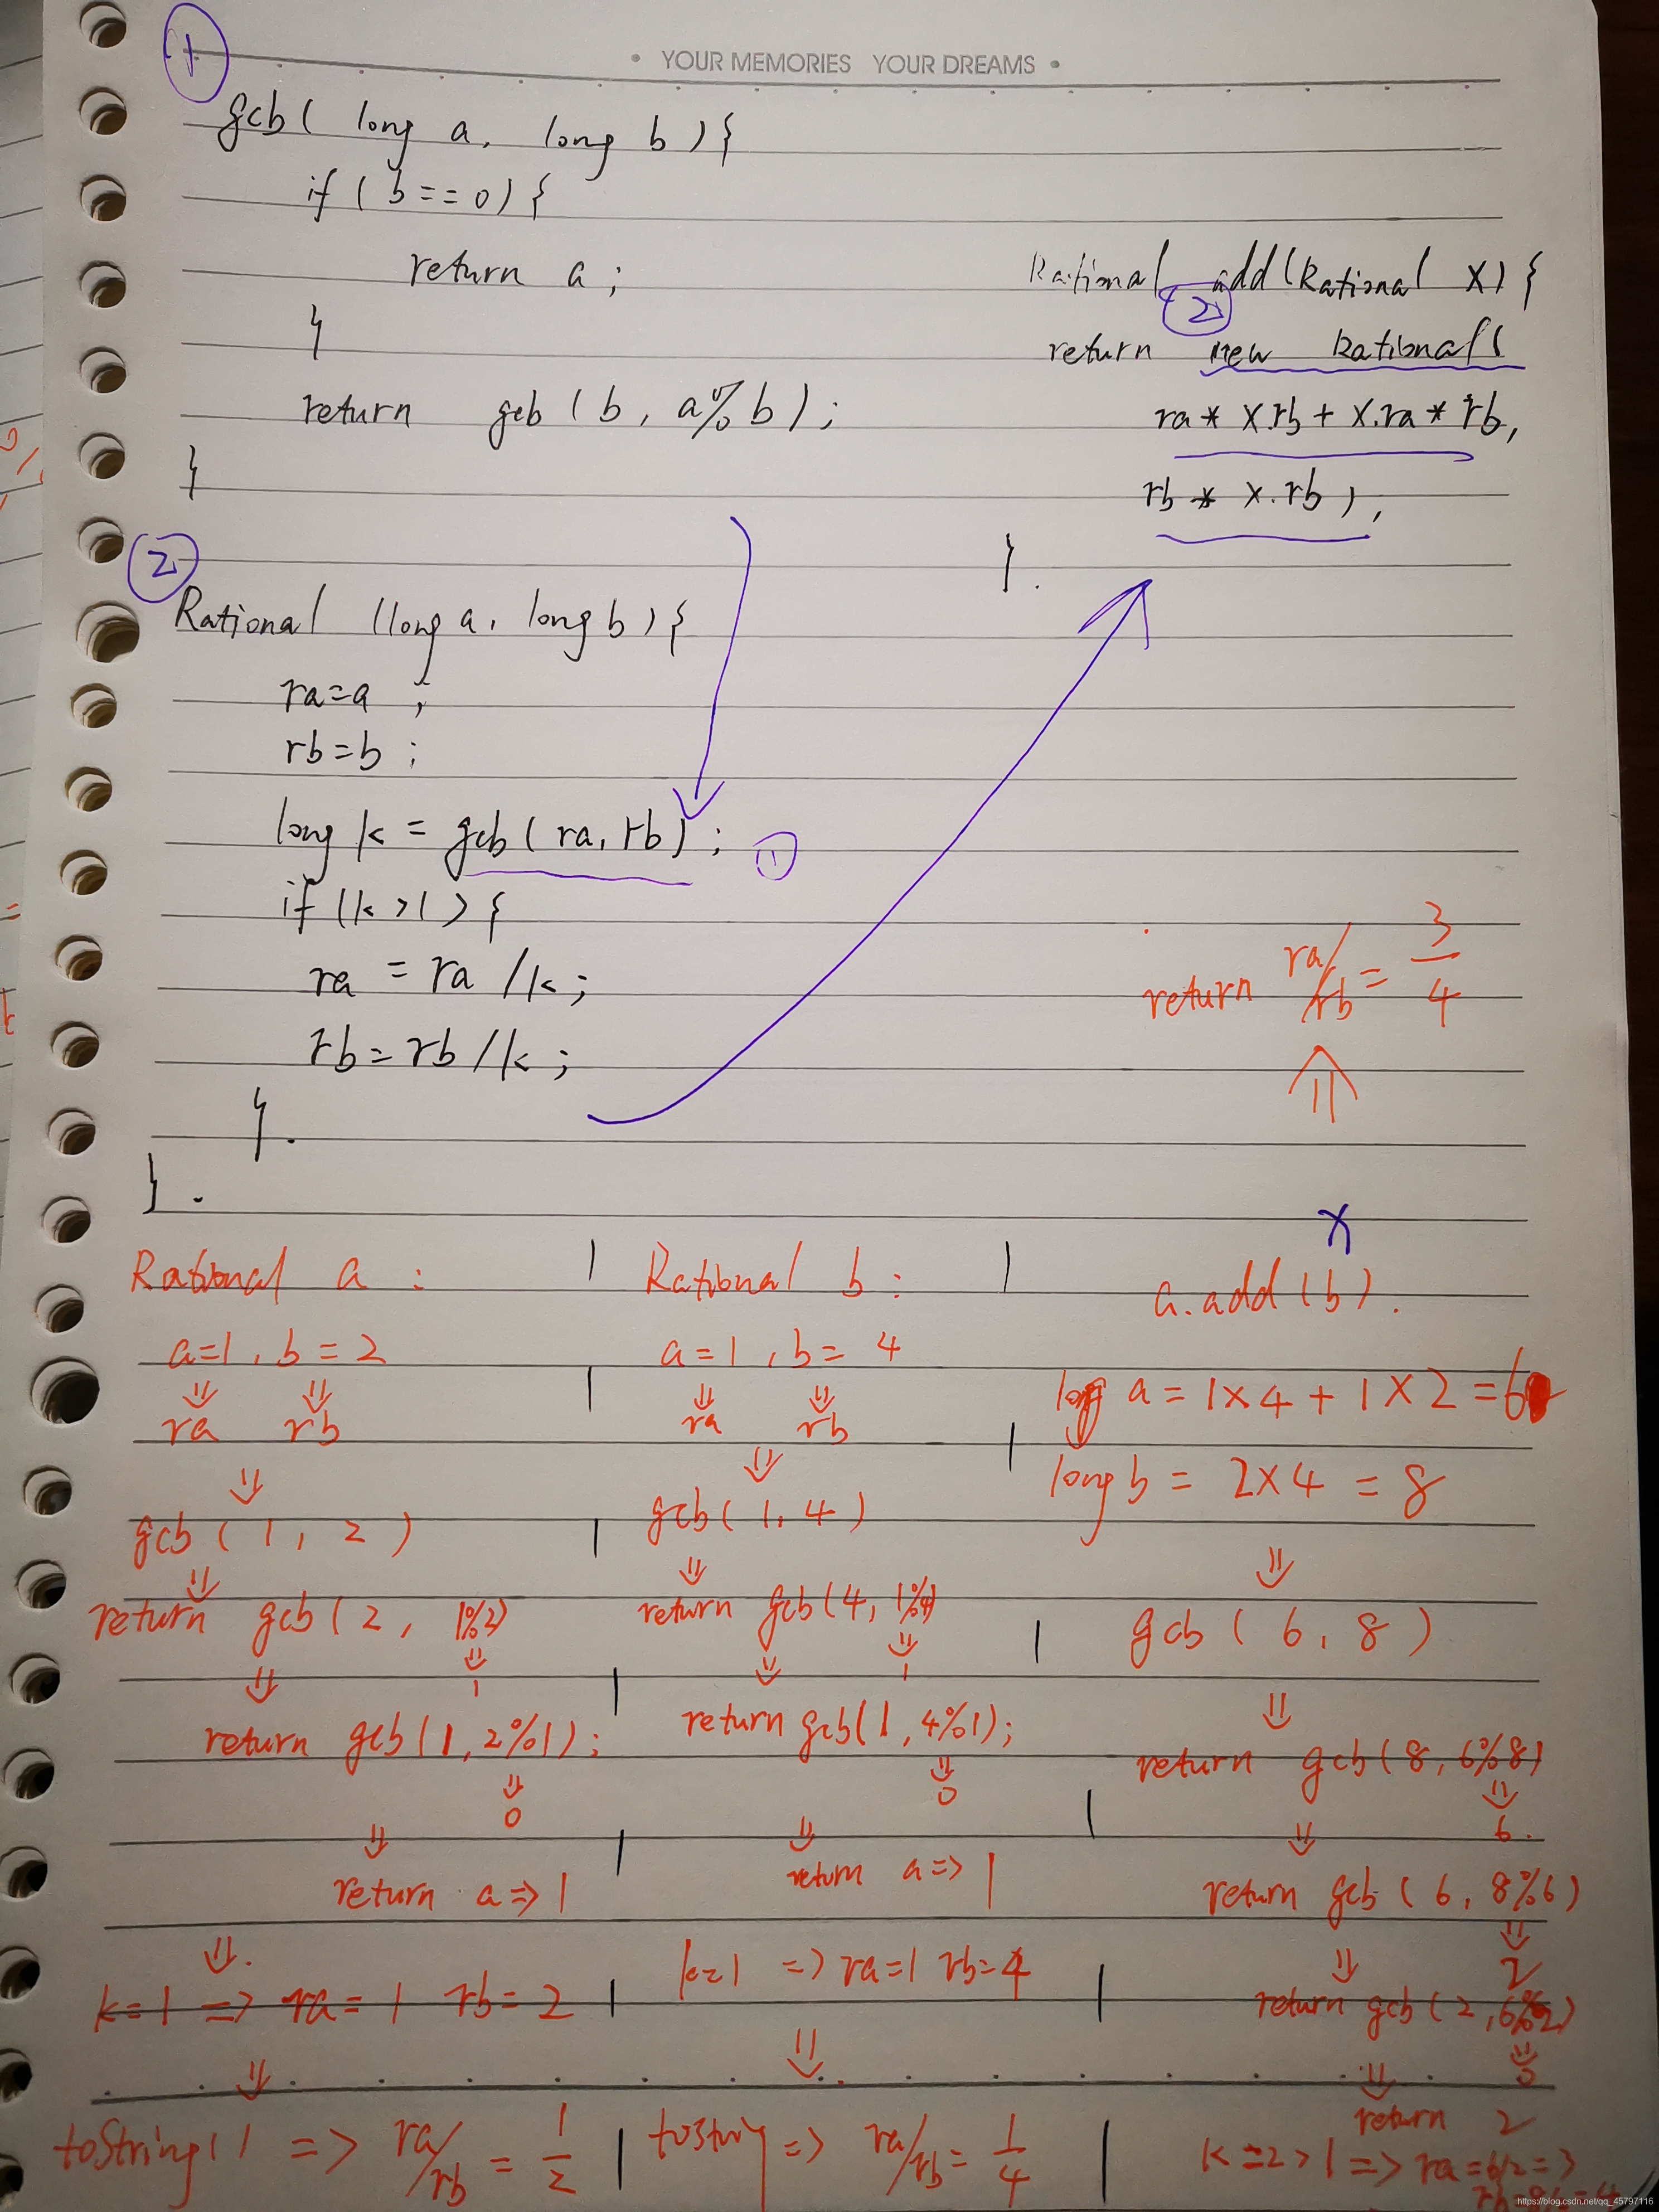 ①
• YOUR MEMORIES YOUR DREAMS •
gcb( long a, long b){
if ( b==0) {
return a ;
}
return gcb ( b, a%b) ;
}
Rational add(Rational x) {
②
return new Rational(
ra* x.rb + x.ra* rb,
rb * x.rb ) ;
}.
②
Rational (long a, long b) {
ra=a ;
rb=b ;
long k = gcb( ra, rb) ; ①
if (k>1) {
ra = ra /k ;
rb = rb /k ;
}.
}.
return ra/rb = 3/4
⇑
Rational a :
a=1, b=2
⇓ ⇓
ra rb
⇓
gcb ( 1, 2 )
⇓
return gcb( 2, 1%2)
⇓ ⇓
1
return gcb(1, 2%1) ;
⇓
0
⇓
return a => 1
⇓.
k=1 => ra=1 rb=2
⇓
toString() => ra/rb = 1/2
Rational b :
a=1, b=4
⇓ ⇓
ra rb
⇓
gcb( 1, 4 )
⇓
return gcb(4, 1%4)
⇓ ⇓
1
return gcb(1, 4%1);
⇓
0
⇓
return a => 1
k=1 => ra=1 rb=4
⇓
toString => ra/rb = 1/4
x
a.add (b) .
long a = 1×4 + 1×2 = 6
long b = 2×4 = 8
⇓
gcb ( 6, 8 )
⇓
return gcb( 8, 6%8)
⇓
6.
⇓
return gcb ( 6, 8%6)
⇓
⇓ 2
return gcb ( 2, 6%2)
⇓
⇓ 0
return 2
k=2>1 => ra=6/2=3
rb=8/2=4
https://blog.csdn.net/qq_45797116